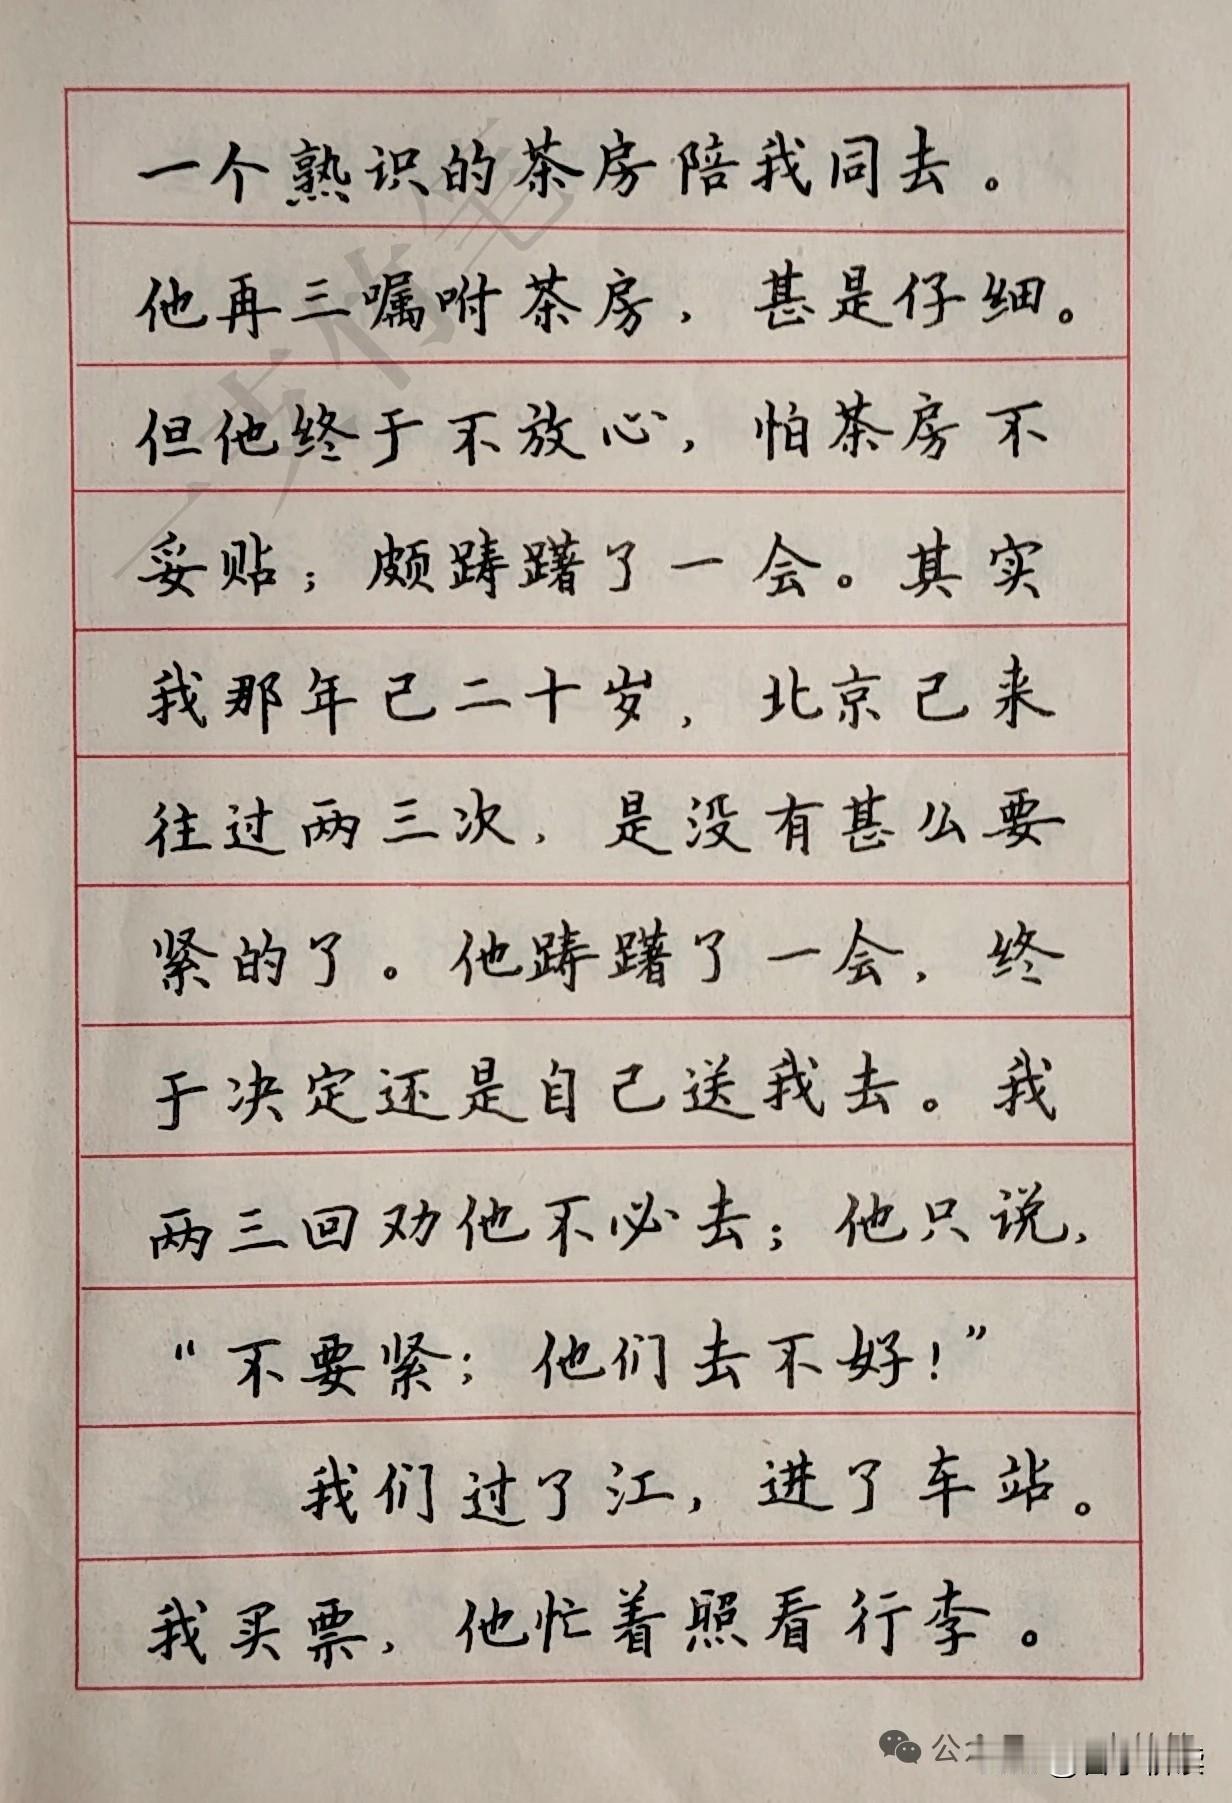 一个熟识的茶房陪我同去。
他再三嘱咐茶房，甚是仔细。
但他终于不放心，怕茶房不
妥贴；颇踌躇了一会。其实
我那年已二十岁，北京已来
往过两三次，是没有甚么要
紧的了。他踌躇了一会，终
于决定还是自己送我去。我
两三回劝他不必去；他只说，
“不要紧；他们去不好！”
我们过了江，进了车站。
我买票，他忙着照看行李。